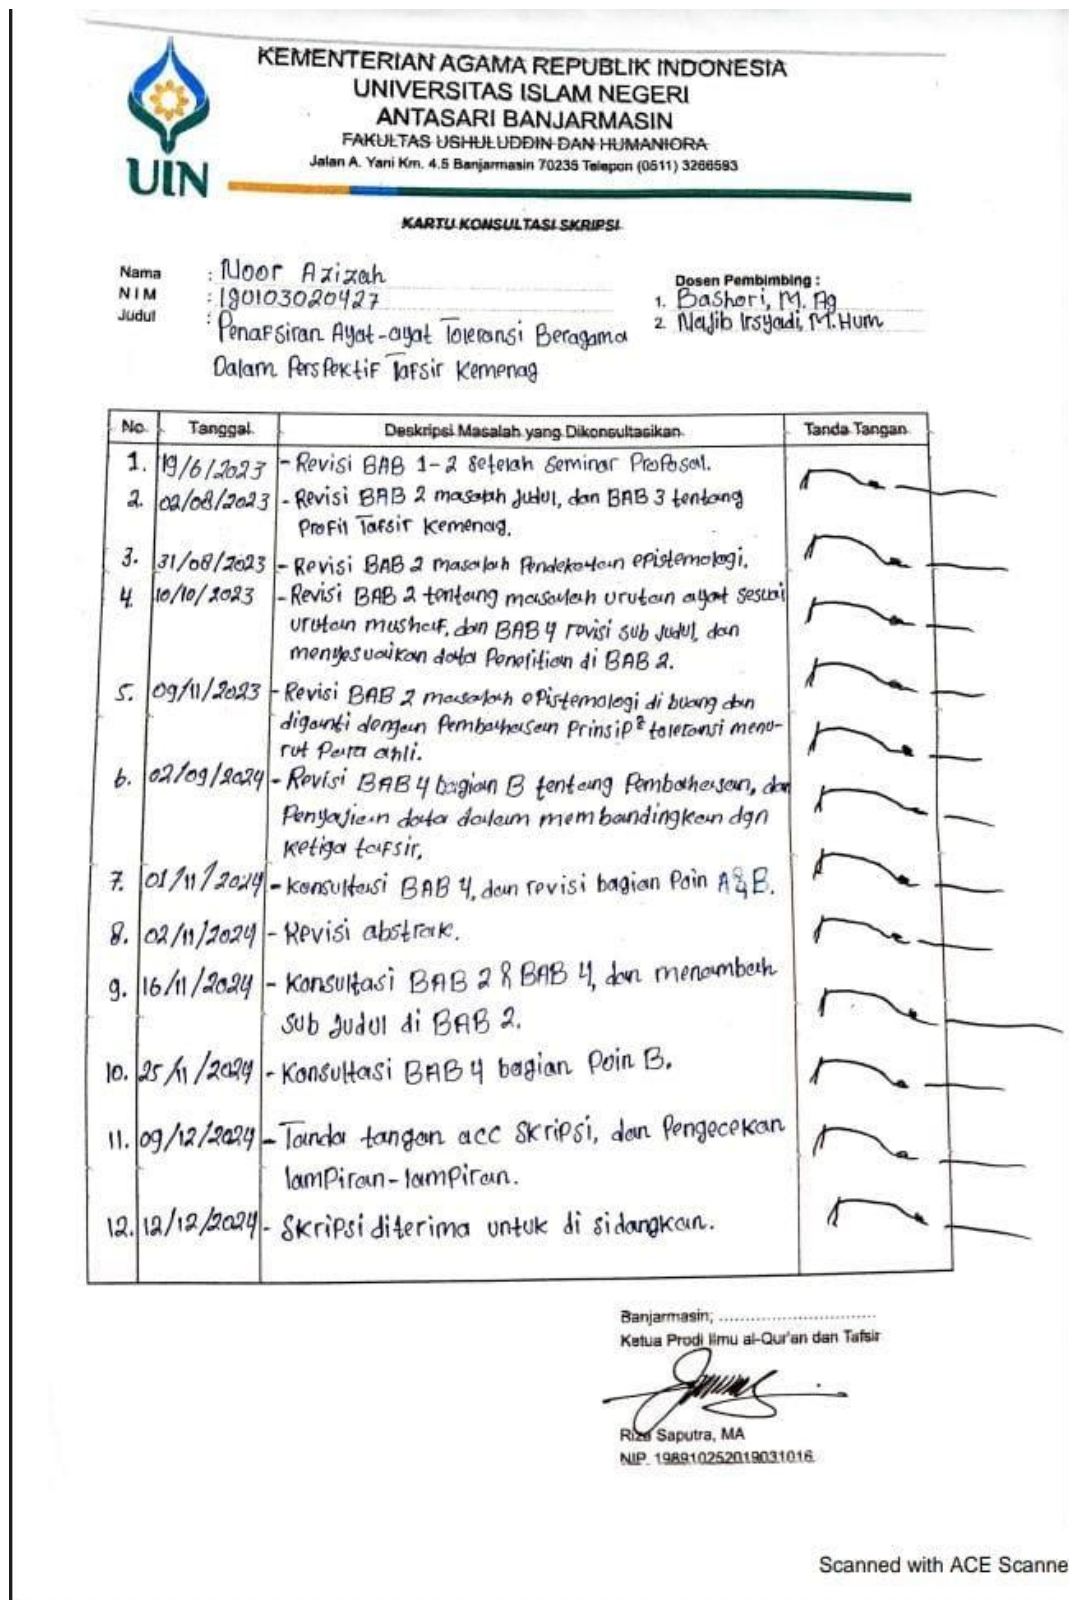 KEMENTERIAN AGAMA REPUBLIK INDONESIA
UNIVERSITAS ISLAM NEGERI
ANTASARI BANJARMASIN
FAKULTAS USHULUDDIN DAN HUMANIORA
Jalan A. Yani Km. 4.5 Banjarmasin 70235 Telepon (0511) 3266593
UIN
KARTU KONSULTASI SKRIPSI
Nama : Noor Azizah
NIM : 190103020427
Judul : Penafsiran Ayat-ayat Toleransi Beragama
Dalam Perspektif Tafsir Kemenag
Dosen Pembimbing :
1. Bashori, M. Ag
2 Najib Irsyadi, M.Hum
No. Tanggal Deskripsi Masalah yang Dikonsultasikan Tanda Tangan
1. 19/6/2023 - Revisi BAB 1-2 setelah seminar Proposal.
2. 02/08/2023 - Revisi BAB 2 masalah judul, dan BAB 3 tentang
Profil Tafsir Kemenag.
3. 31/08/2023 - Revisi BAB 2 masalah Pendekatan epistemologi.
4. 10/10/2023 - Revisi BAB 2 tentang masalah urutan ayat sesuai
urutan mushaf, dan BAB 4 revisi sub judul, dan
menyesuaikan data Penelitian di BAB 2.
5. 09/11/2023 - Revisi BAB 2 masalah epistemologi di buang dan
diganti dengan Pembahasan Prinsip² toleransi menu-
rut Para ahli.
6. 02/09/2024 - Revisi BAB 4 bagian B tentang Pembahasan, dan
Penyajian data dalam membandingkan dgn
ketiga tafsir.
7. 01/11/2024 - konsultasi BAB 4, dan revisi bagian Poin A & B.
8. 02/11/2024 - Revisi abstrak.
9. 16/11/2024 - Konsultasi BAB 2 & BAB 4, dan menambah
sub judul di BAB 2.
10. 25/11/2024 - Konsultasi BAB 4 bagian Poin B.
11. 09/12/2024 - Tanda tangan acc skripsi, dan Pengecekan
lampiran-lampiran.
12. 12/12/2024 - Skripsi diterima untuk di sidangkan.
Banjarmasin, ................................
Ketua Prodi Ilmu al-Qur'an dan Tafsir
Riza Saputra, MA
NIP. 198910252019031016
Scanned with ACE Scanne